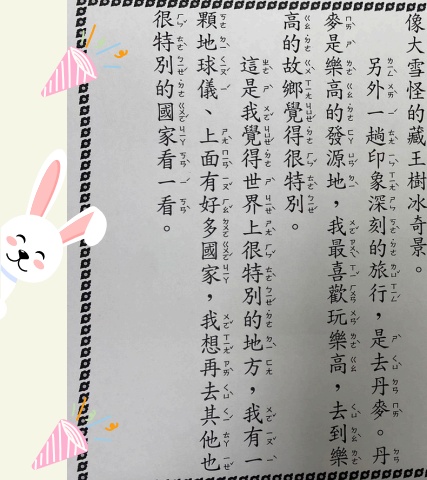 像大雪怪的藏王樹冰奇景。
另外一趟印象深刻的旅行，是去丹麥。丹
麥是樂高的發源地，我最喜歡玩樂高，去到樂
高的故鄉覺得很特別。
這是我覺得世界上很特別的地方，我有一
顆地球儀、上面有好多國家，我想再去其他也
很特別的國家看一看。